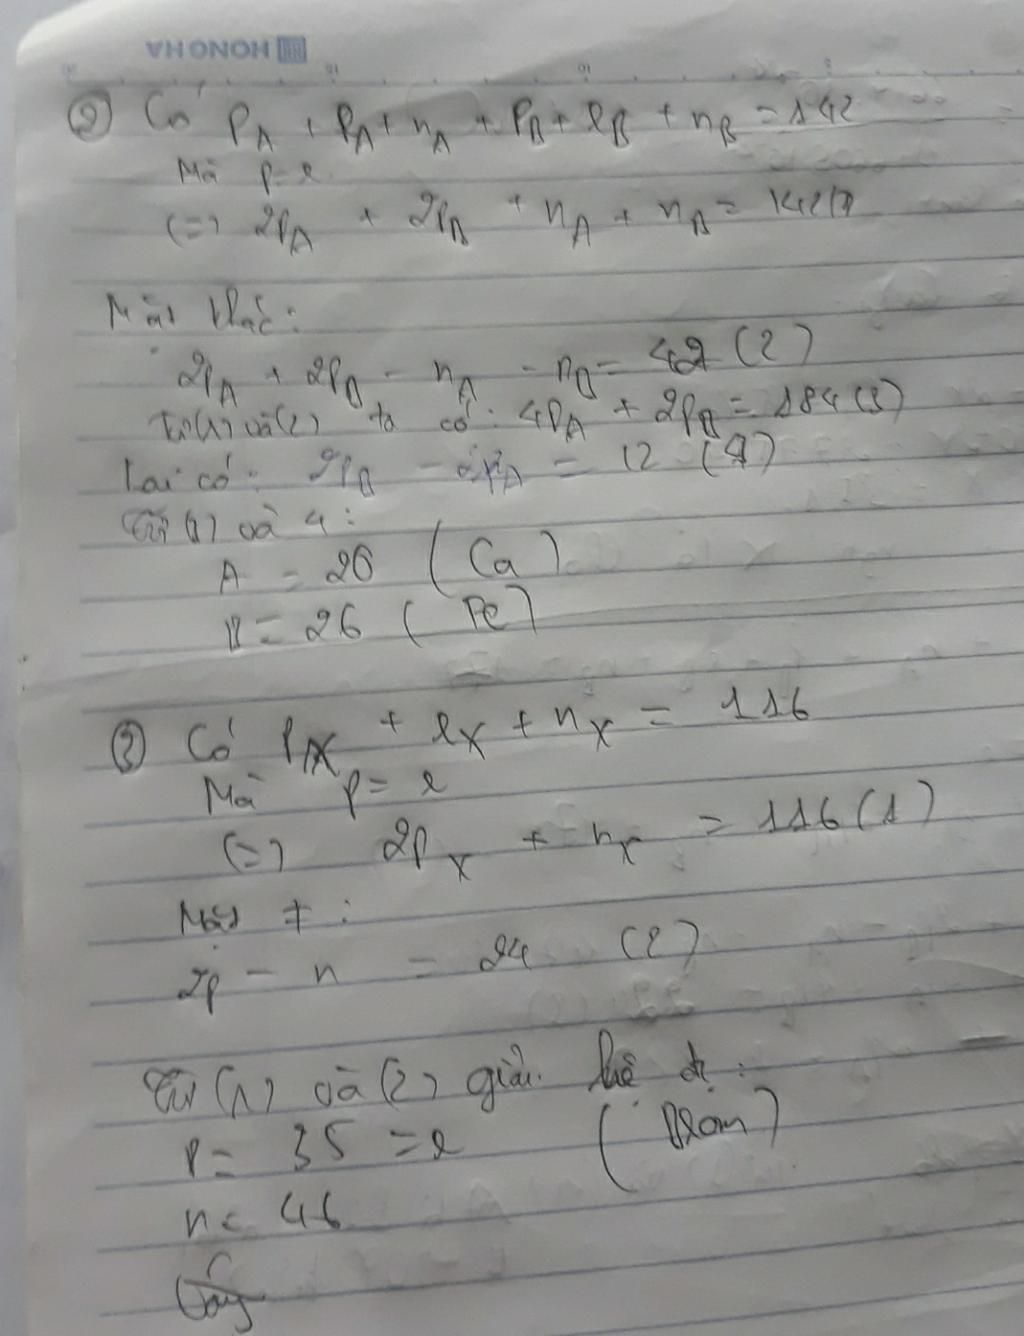 HONG HA
② Có P_A + P_A + n_A + P_B + e_B + n_B = 142
Mà p = e
(=) 2P_A + 2P_B + n_A + n_B = 142 (1)
Mặt khác:
2P_A + 2P_B - n_A - n_B = 42 (2)
Từ (1) và (2) ta có: 4P_A + 2P_B = 184 (3)
Lại có: 2P_B - 2P_A = 12 (4)
Từ (3) và 4:
A = 20 (Ca)
B = 26 (Fe)
③ Có P_X + e_X + n_X = 116
Mà p = e
(=) 2P_X + n_X = 116 (1)
Mặt ≠ :
2p - n = 24 (2)
Từ (1) và (2) giải hệ đc:
P = 35 = e (Brom)
n = 46